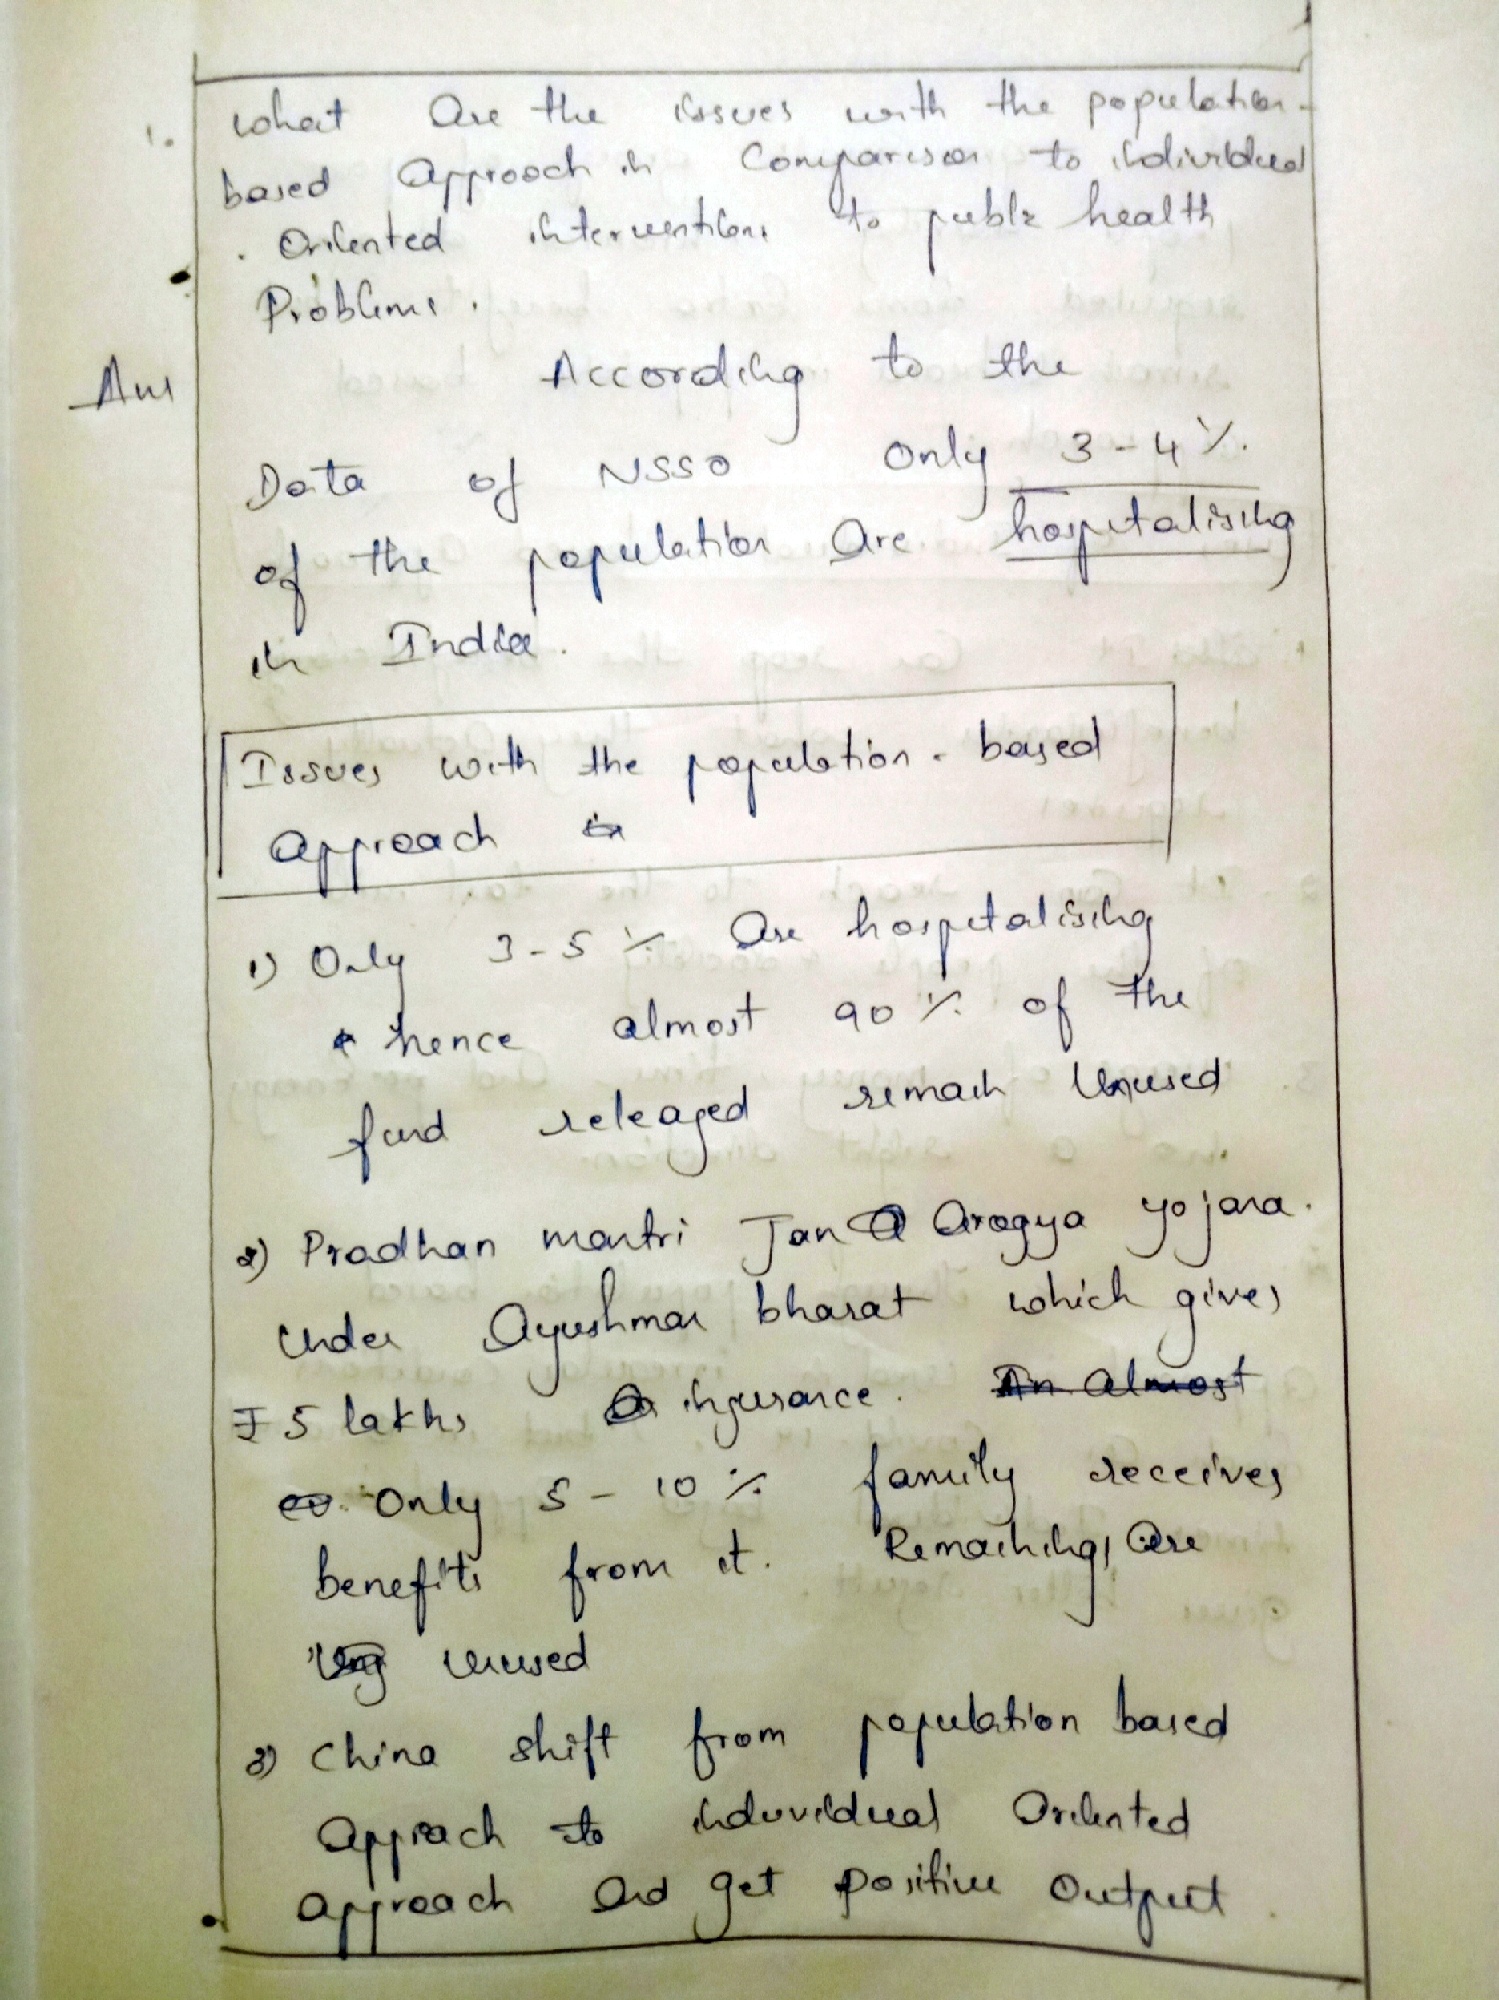 1. What are the issues with the population-
based approach in comparison to individual
. Oriented interventions to public health
Problems.
Ans According to the
Data of NSSO only 3-4%
of the population are hospitalising
in India.
Issues with the population-based
approach
1) Only 3-5% are hospitalising
hence almost 90% of the
fund released remain unused
2) Pradhan mantri Jan Arogya yojana.
under Ayushman bharat which gives
₹5 lakhs insurance. In almost
Only 5-10% family receives
benefits from it. Remaining, are
unused
3) China shift from population based
appraach to induvidual Oriented
approach and get positive output.